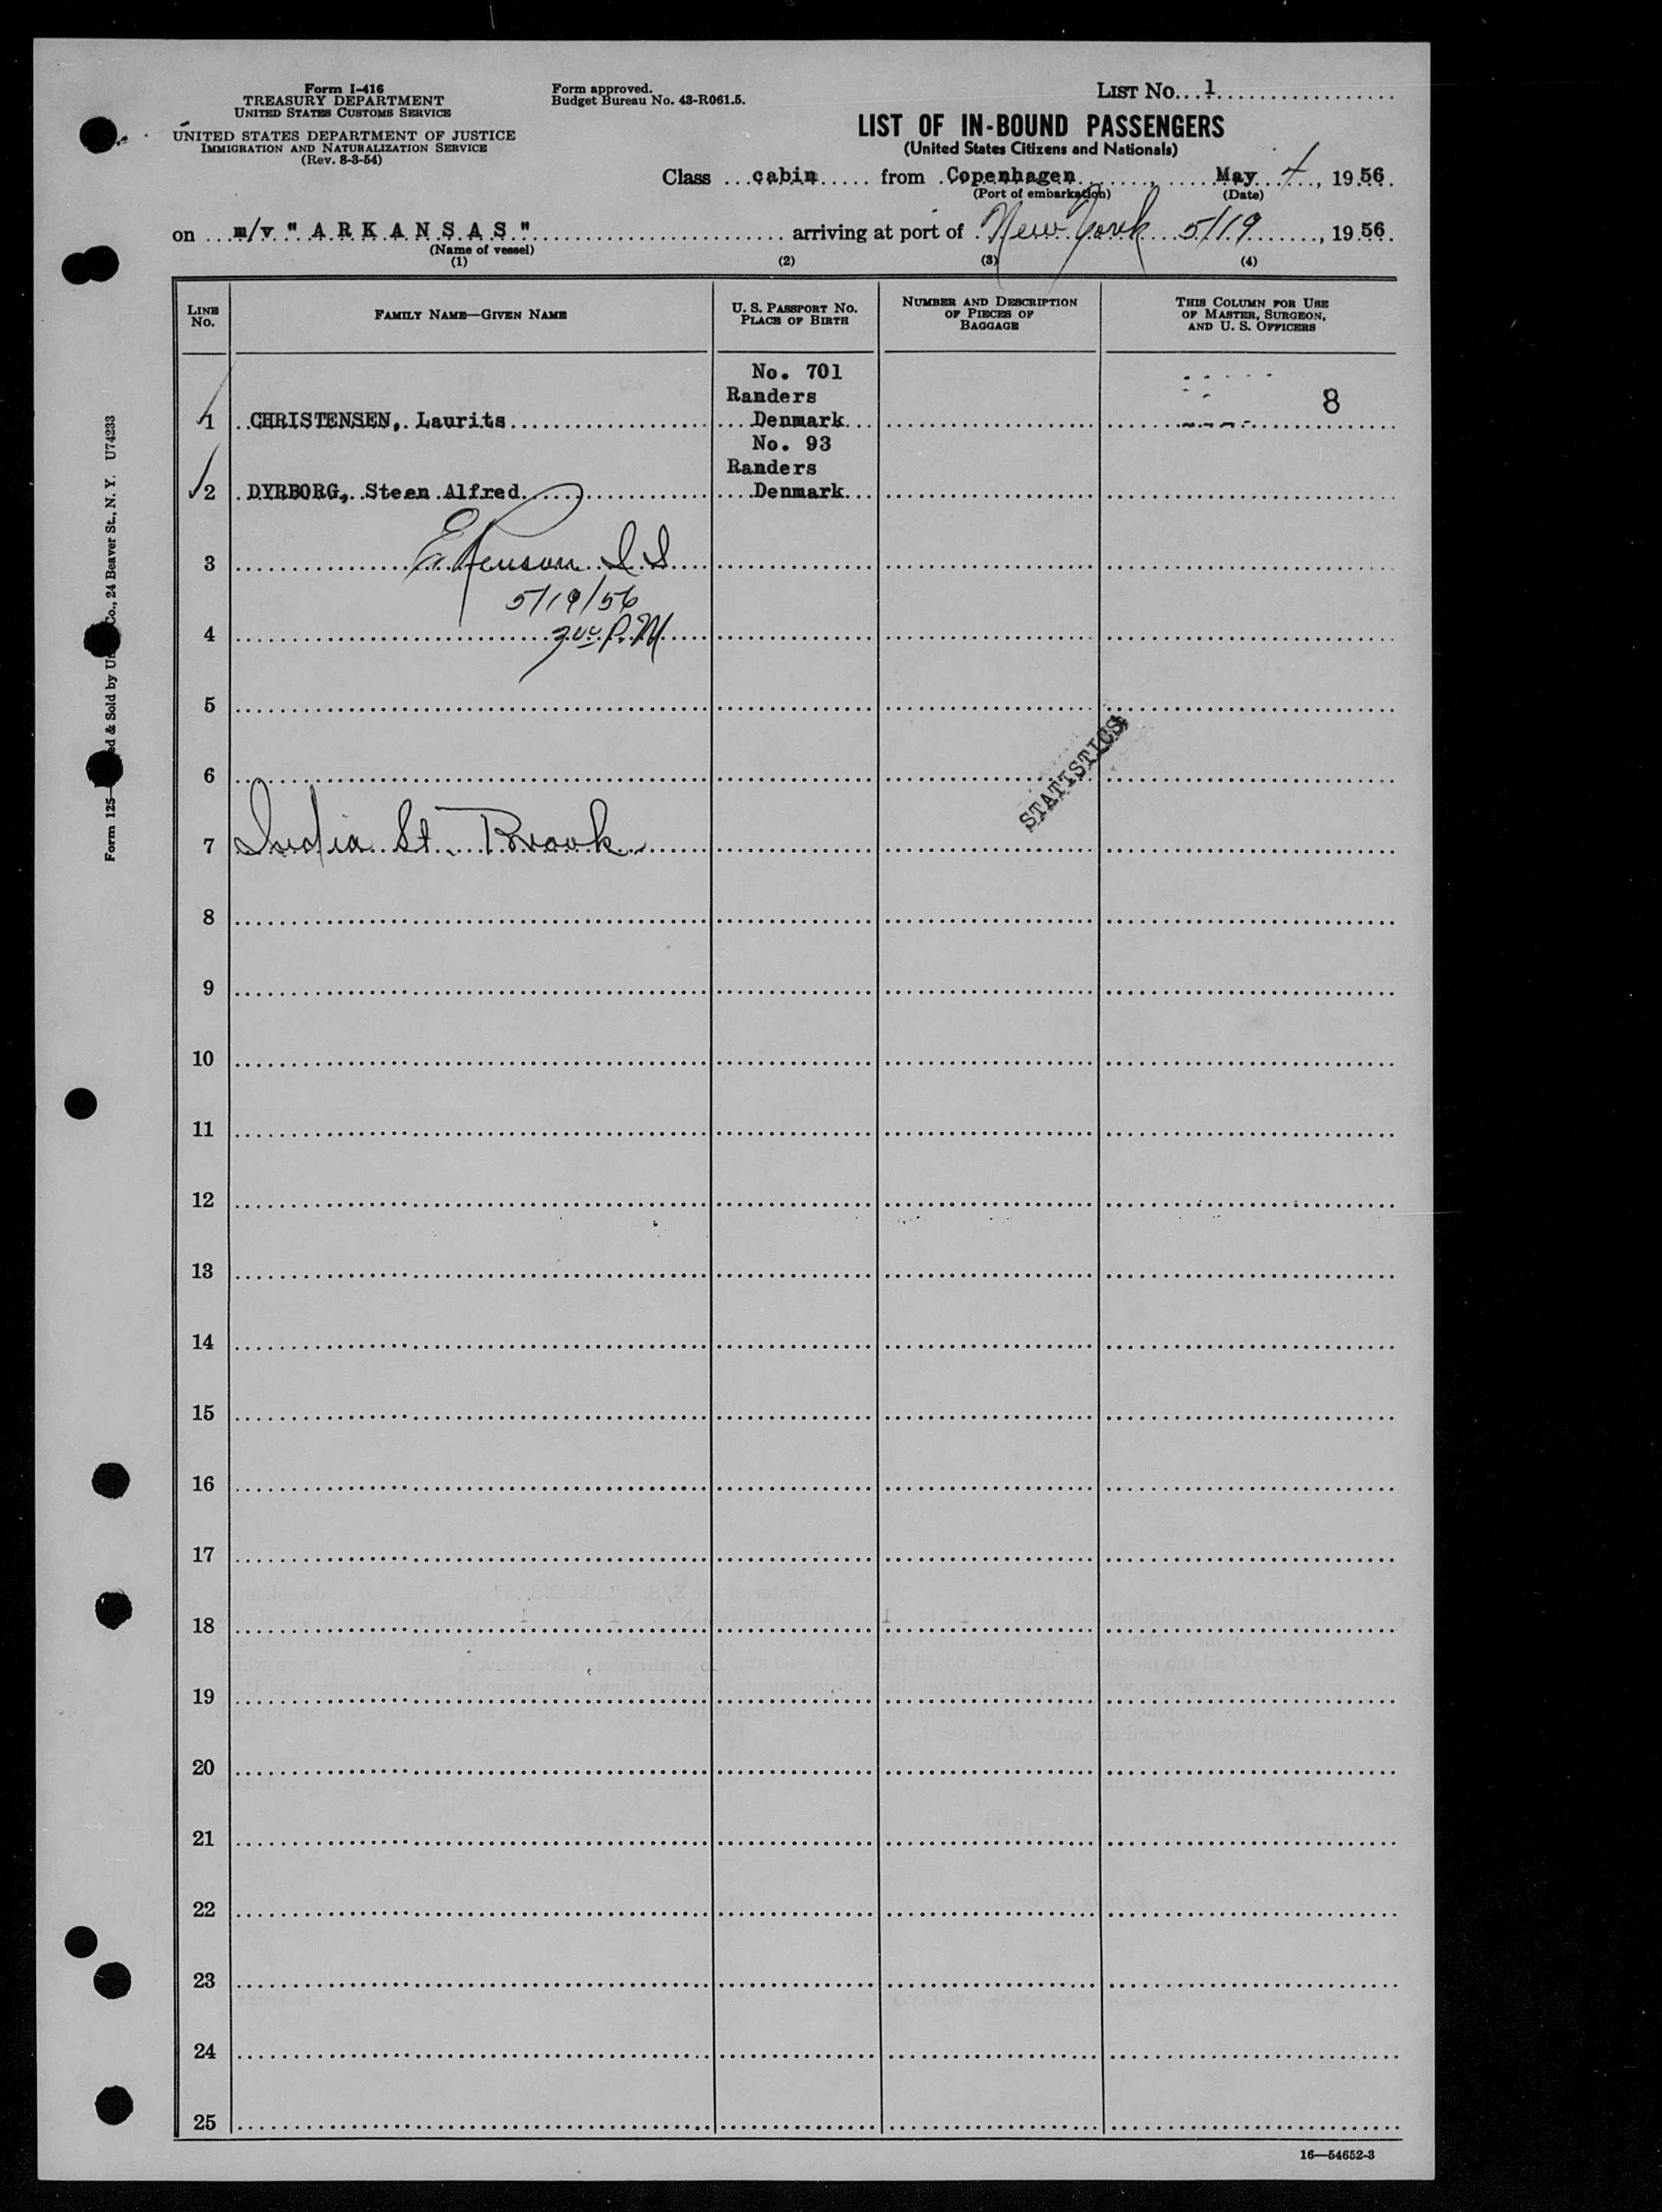 Form I-416
TREASURY DEPARTMENT
UNITED STATES CUSTOMS SERVICE
UNITED STATES DEPARTMENT OF JUSTICE
IMMIGRATION AND NATURALIZATION SERVICE
(Rev. 8-3-54)
Form approved.
Budget Bureau No. 43-R061.5.
LIST No. 1
LIST OF IN-BOUND PASSENGERS
(United States Citizens and Nationals)
Class cabin from Copenhagen, May 4, 1956
(Port of embarkation) (Date)
on m/v " A R K A N S A S " arriving at port of New York 5/19, 1956
(Name of vessel)
(1) (2) (3) (4)
LINE No.
FAMILY NAME—GIVEN NAME
U. S. PASSPORT No. PLACE OF BIRTH
NUMBER AND DESCRIPTION OF PIECES OF BAGGAGE
THIS COLUMN FOR USE OF MASTER, SURGEON, AND U. S. OFFICERS
No. 701
Randers
1 CHRISTENSEN, Laurits Denmark 8
No. 93
Randers
2 DYRBORG, Steen Alfred Denmark
3
5/19/56
4 P.M
5
STATISTICS
6
7 India St. Brook
8
9
10
11
12
13
14
15
16
17
18
19
20
21
22
23
24
25
16—54652-3
Form 125— ed & Sold by Un Co., 24 Beaver St., N. Y. U74233